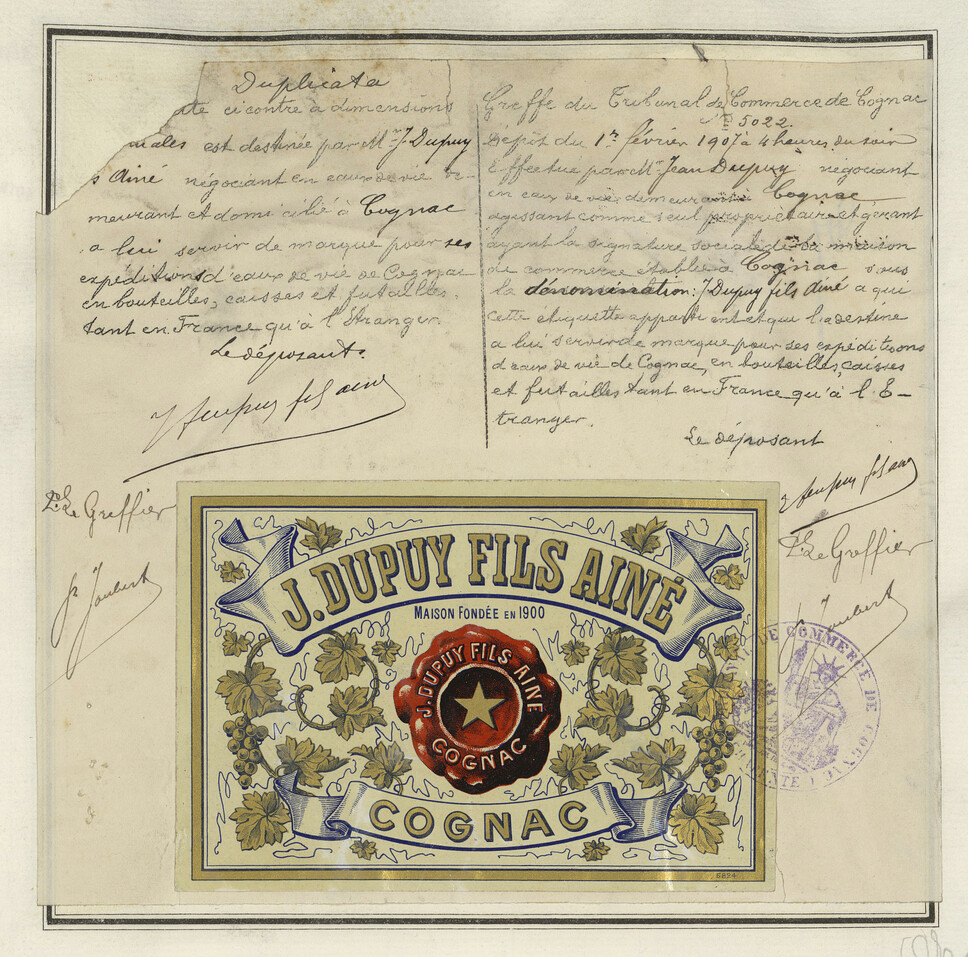 Duplicata
ci contre à dimensions
est destinée par Mr J. Dupuy
s Ainé négociant en eaux de vie de-
meurant et domicilié à Cognac
a lui servir de marque pour ses
expéditions d'eaux de vie de Cognac
en bouteilles, caisses et futailles,
tant en France qu'à l'Etranger.
Le déposant.
J Dupuy fils ainé
Pr Le Greffier
Joubert
Greffe du Tribunal de Commerce de Cognac
No 5022.
Dépôt du 1er février 1907 à 4 heures du soir
Effectué par Mr Jean Dupuy négociant
en eaux de vie demeurant à Cognac
agissant comme seul propriétaire et gérant
ayant la signature sociale de la maison
de commerce établie à Cognac sous
la dénomination: J Dupuy fils Ainé a qui
cette étiquette appartient et qui la destine
a lui servir de marque pour ses expéditions
d'eaux de vie de Cognac, en bouteilles, caisses
et futailles tant en France qu'à l'E-
tranger.
Le déposant
J Dupuy fils ainé
Pr Le Greffier
Joubert
J. DUPUY FILS AINÉ
MAISON FONDÉE EN 1900
J. DUPUY FILS AINÉ
COGNAC
COGNAC
6824
DE COMMERCE DE COGNAC